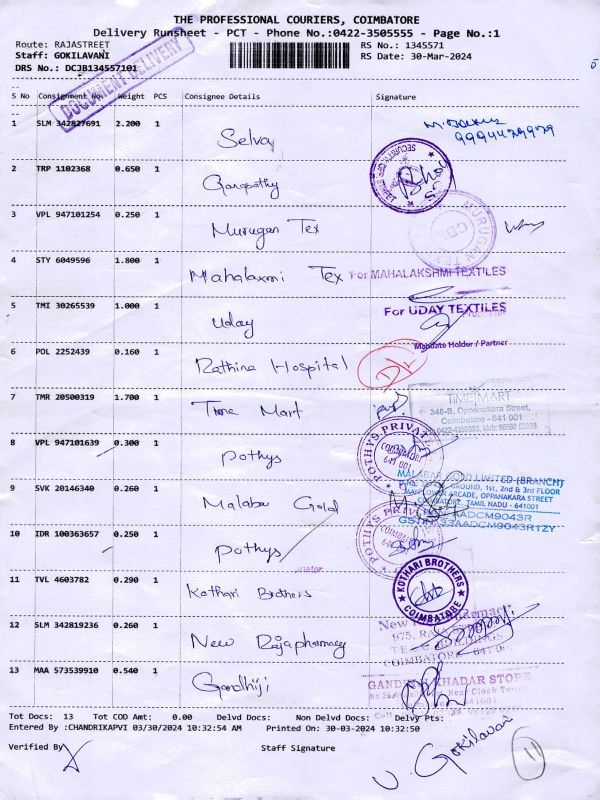 THE PROFESSIONAL COURIERS, COIMBATORE
Delivery Runsheet - PCT - Phone No.:0422-3505555 - Page No.:1
Route: RAJASTREET
Staff: GOKILAVANI
DRS No.: DCJB134557101
RS No.: 1345571
RS Date: 30-Mar-2024
DOCUMENT DELIVERY
S No Consignment No. Weight PCS Consignee Details Signature
1 SLM 342827691 2.200 1 Selva
9994479979
2 TRP 1102368 0.650 1 Ganapathy
3 VPL 947101254 0.250 1 Murugan Tex
4 STY 6049596 1.800 1 Mahalaxmi Tex For MAHALAKSHMI TEXTILES
5 TMI 30265539 1.000 1 Uday For UDAY TEXTILES
Mandate Holder / Partner
6 POL 2252439 0.160 1 Rathina Hospital
7 TMR 20500319 1.700 1 Time Mart
TIME MART
346-B, Oppanakara Street,
Coimbatore - 641 001
8 VPL 947101639 0.300 1 Pothys
POTHYS PRIVATE
COIMBATORE
641 001
9 SVK 20146340 0.260 1 Malabar Gold
MALABAR GOLD LIMITED (BRANCH)
GROUND, 1st, 2nd & 3rd FLOOR
ARCADE, OPPANAKARA STREET
COIMBATORE, TAMIL NADU - 641001
GSTIN: 33AADCM9043R1ZY
10 IDR 100363657 0.250 1 Pothys
POTHYS PRIVATE
11 TVL 4603782 0.290 1 Kothari Brothers
KOTHARI BROTHERS
COIMBATORE
12 SLM 342819236 0.260 1 New Rajapharmacy
13 MAA 573539910 0.540 1 Gandhiji
KHADAR STORE
Near Clock Tower
Tot Docs: 13 Tot COD Amt: 0.00 Delvd Docs: Non Delvd Docs: Delvy Pts:
Entered By :CHANDRIKAPVI 03/30/2024 10:32:54 AM Printed On: 30-03-2024 10:32:50
Verified By Staff Signature
V. Gokilavani
11